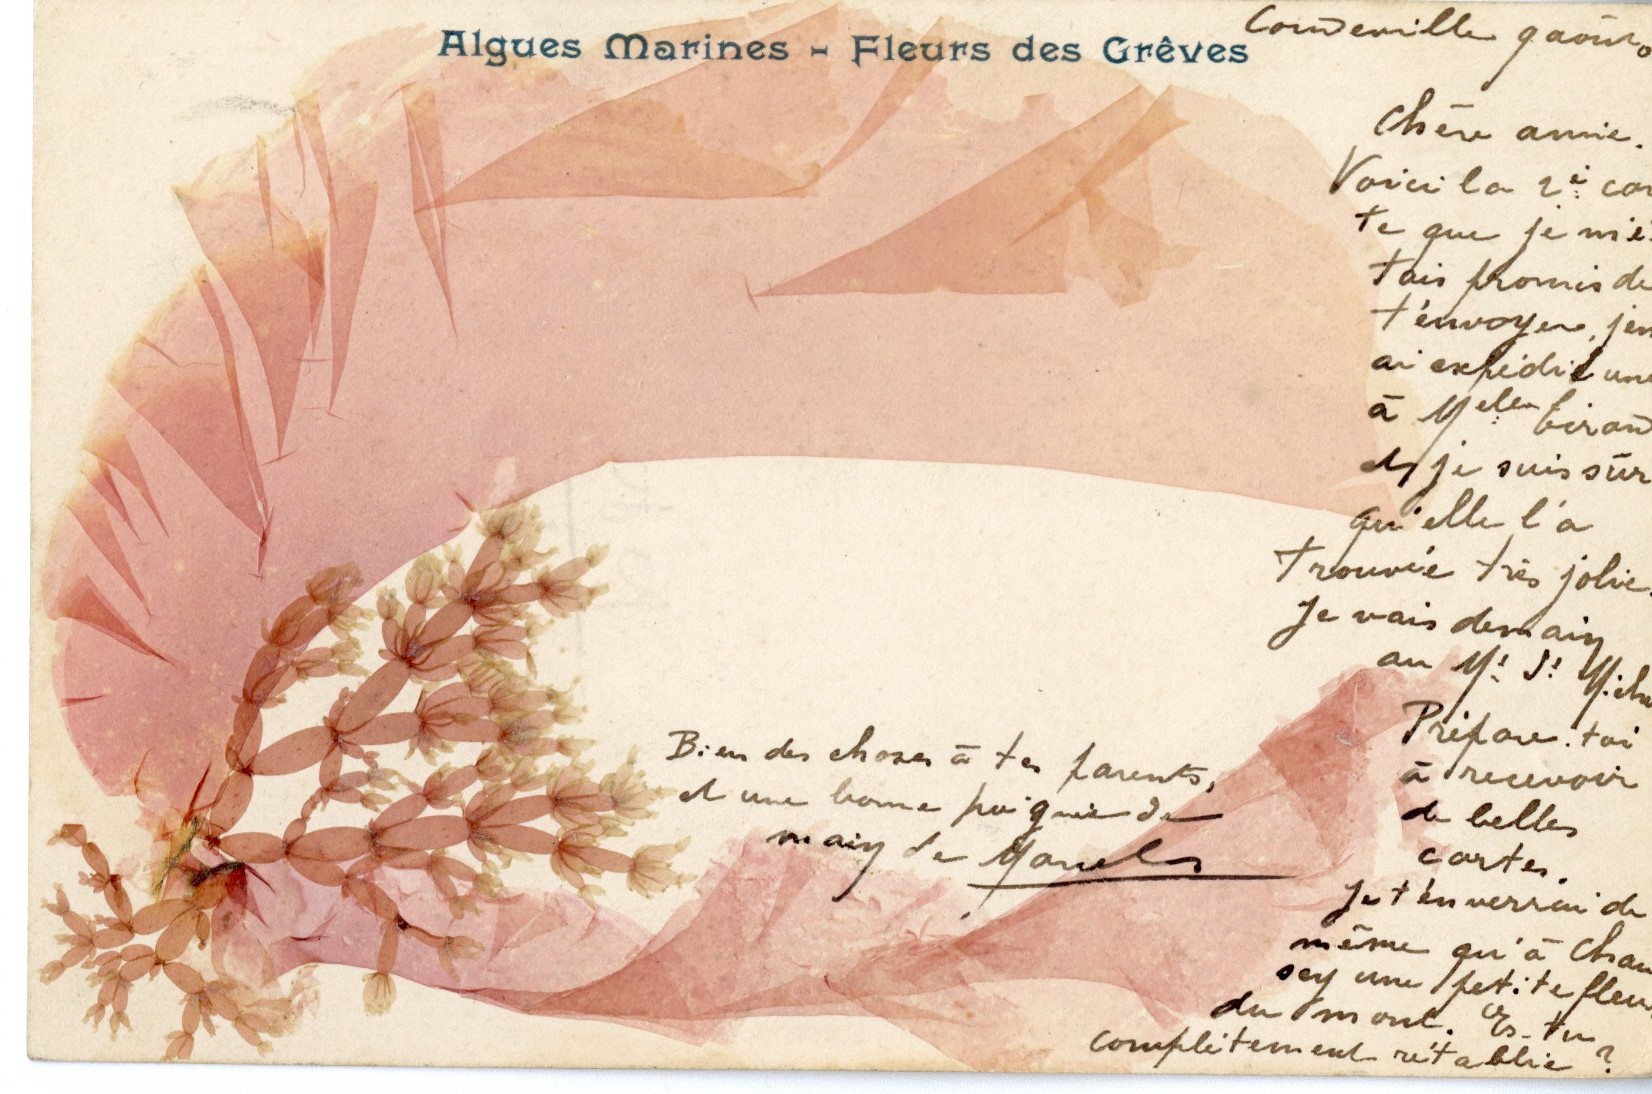 Algues Marines - Fleurs des Grêves
Coudeville 9 août
Chère amie.
Voici la 2e car
te que je m'é
tais promis de
t'envoyer, j'en
ai expédié une
à Melle
et je suis sûr
qu'elle l'a
trouvée très jolie.
Je vais demain
au Mt St Miche
Prépare-toi
à recevoir
de belles
cartes.
Je t'enverrai de
même qu'à Chau
sey une petite fleu
du mont. Es-tu
complètement rétablie ?
Bien des choses à tes parents,
et une bonne poignée de
main de